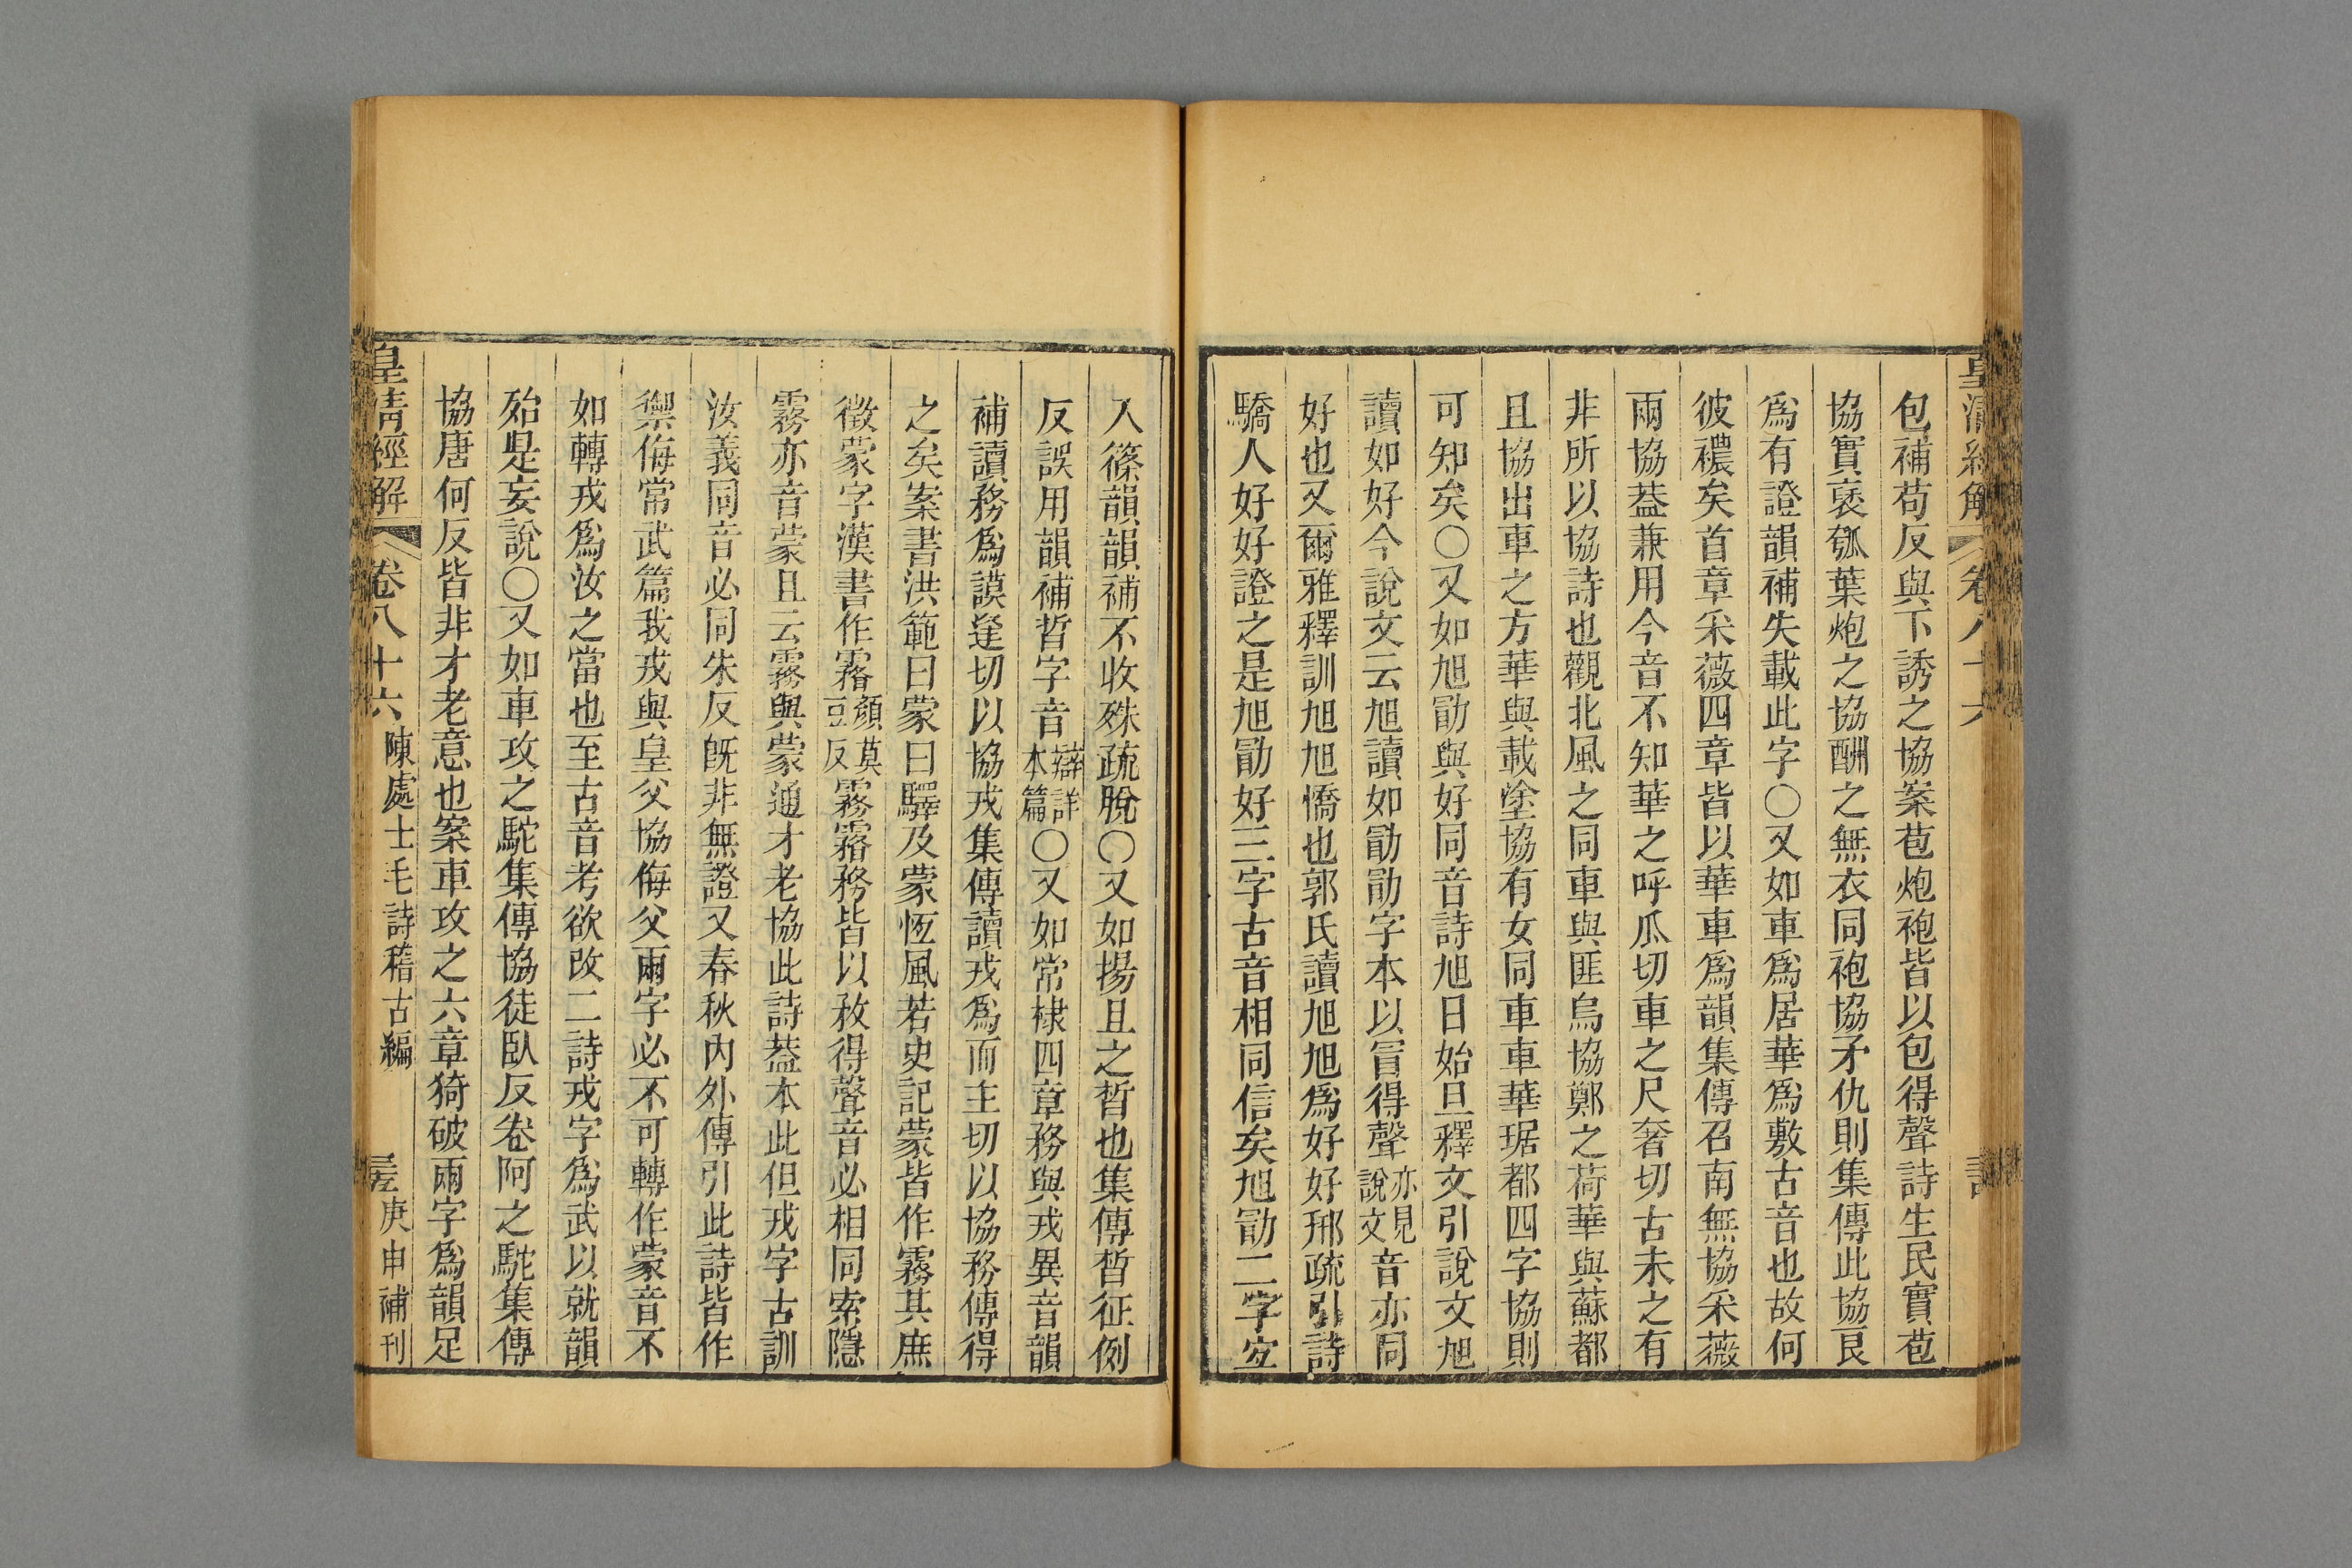 包補苟反與下誘之協案苞炮袍皆以包得聲詩生民實苞
協實襃瓠葉炮之協酬之無衣同袍協矛仇則集傳此協艮
爲有證韻補失載此字○又如車爲居華爲敷古音也故何
彼襛矣首章采薇四章皆以華車爲韻集傳召南無協采薇
兩協葢兼用今音不知華之呼瓜切車之尺奢切古未之有
非所以協詩也觀北風之同車與匪烏協鄭之荷華與蘇都
且協出車之方華與載塗協有女同車車華琚都四字協則
可知矣○又如旭勖與好同音詩旭日始旦釋文引說文旭
讀如好今說文云旭讀如勖勖字本以冒得聲亦見說文音亦同
好也又爾雅釋訓旭旭憍也郭氏讀旭旭爲好好邢疏引詩
驕人好好證之是旭勖好三字古音相同信矣旭勖二字宜
入篠韻韻補不收殊疏脫○又如揚且之晳也集傳晳征例
反誤用韻補晢字音辯詳本篇○又如常棣四章務與戎異音韻
補讀務爲謨逢切以協戎集傳讀戎爲而主切以協務傳得
之矣案書洪範曰蒙曰驛及蒙恆風若史記蒙皆作霧其庶
徵蒙字漢書作霿顏莫豆反霧霿務皆以敄得聲音必相同索隱
霧亦音蒙且云霧與蒙通才老協此詩葢本此但戎字古訓
汝義同音必同朱反旣非無證又春秋內外傳引此詩皆作
禦侮常武篇我戎與皇父協侮父兩字必不可轉作蒙音不
如轉戎爲汝之當也至古音考欲改二詩戎字爲武以就韻
殆是妄說○又如車攻之駝集傳協徒臥反卷阿之駝集傳
協唐何反皆非才老意也案車攻之六章猗破兩字爲韻足
皇清經解 卷八十六 陳處士毛詩稽古編 庚申補刊